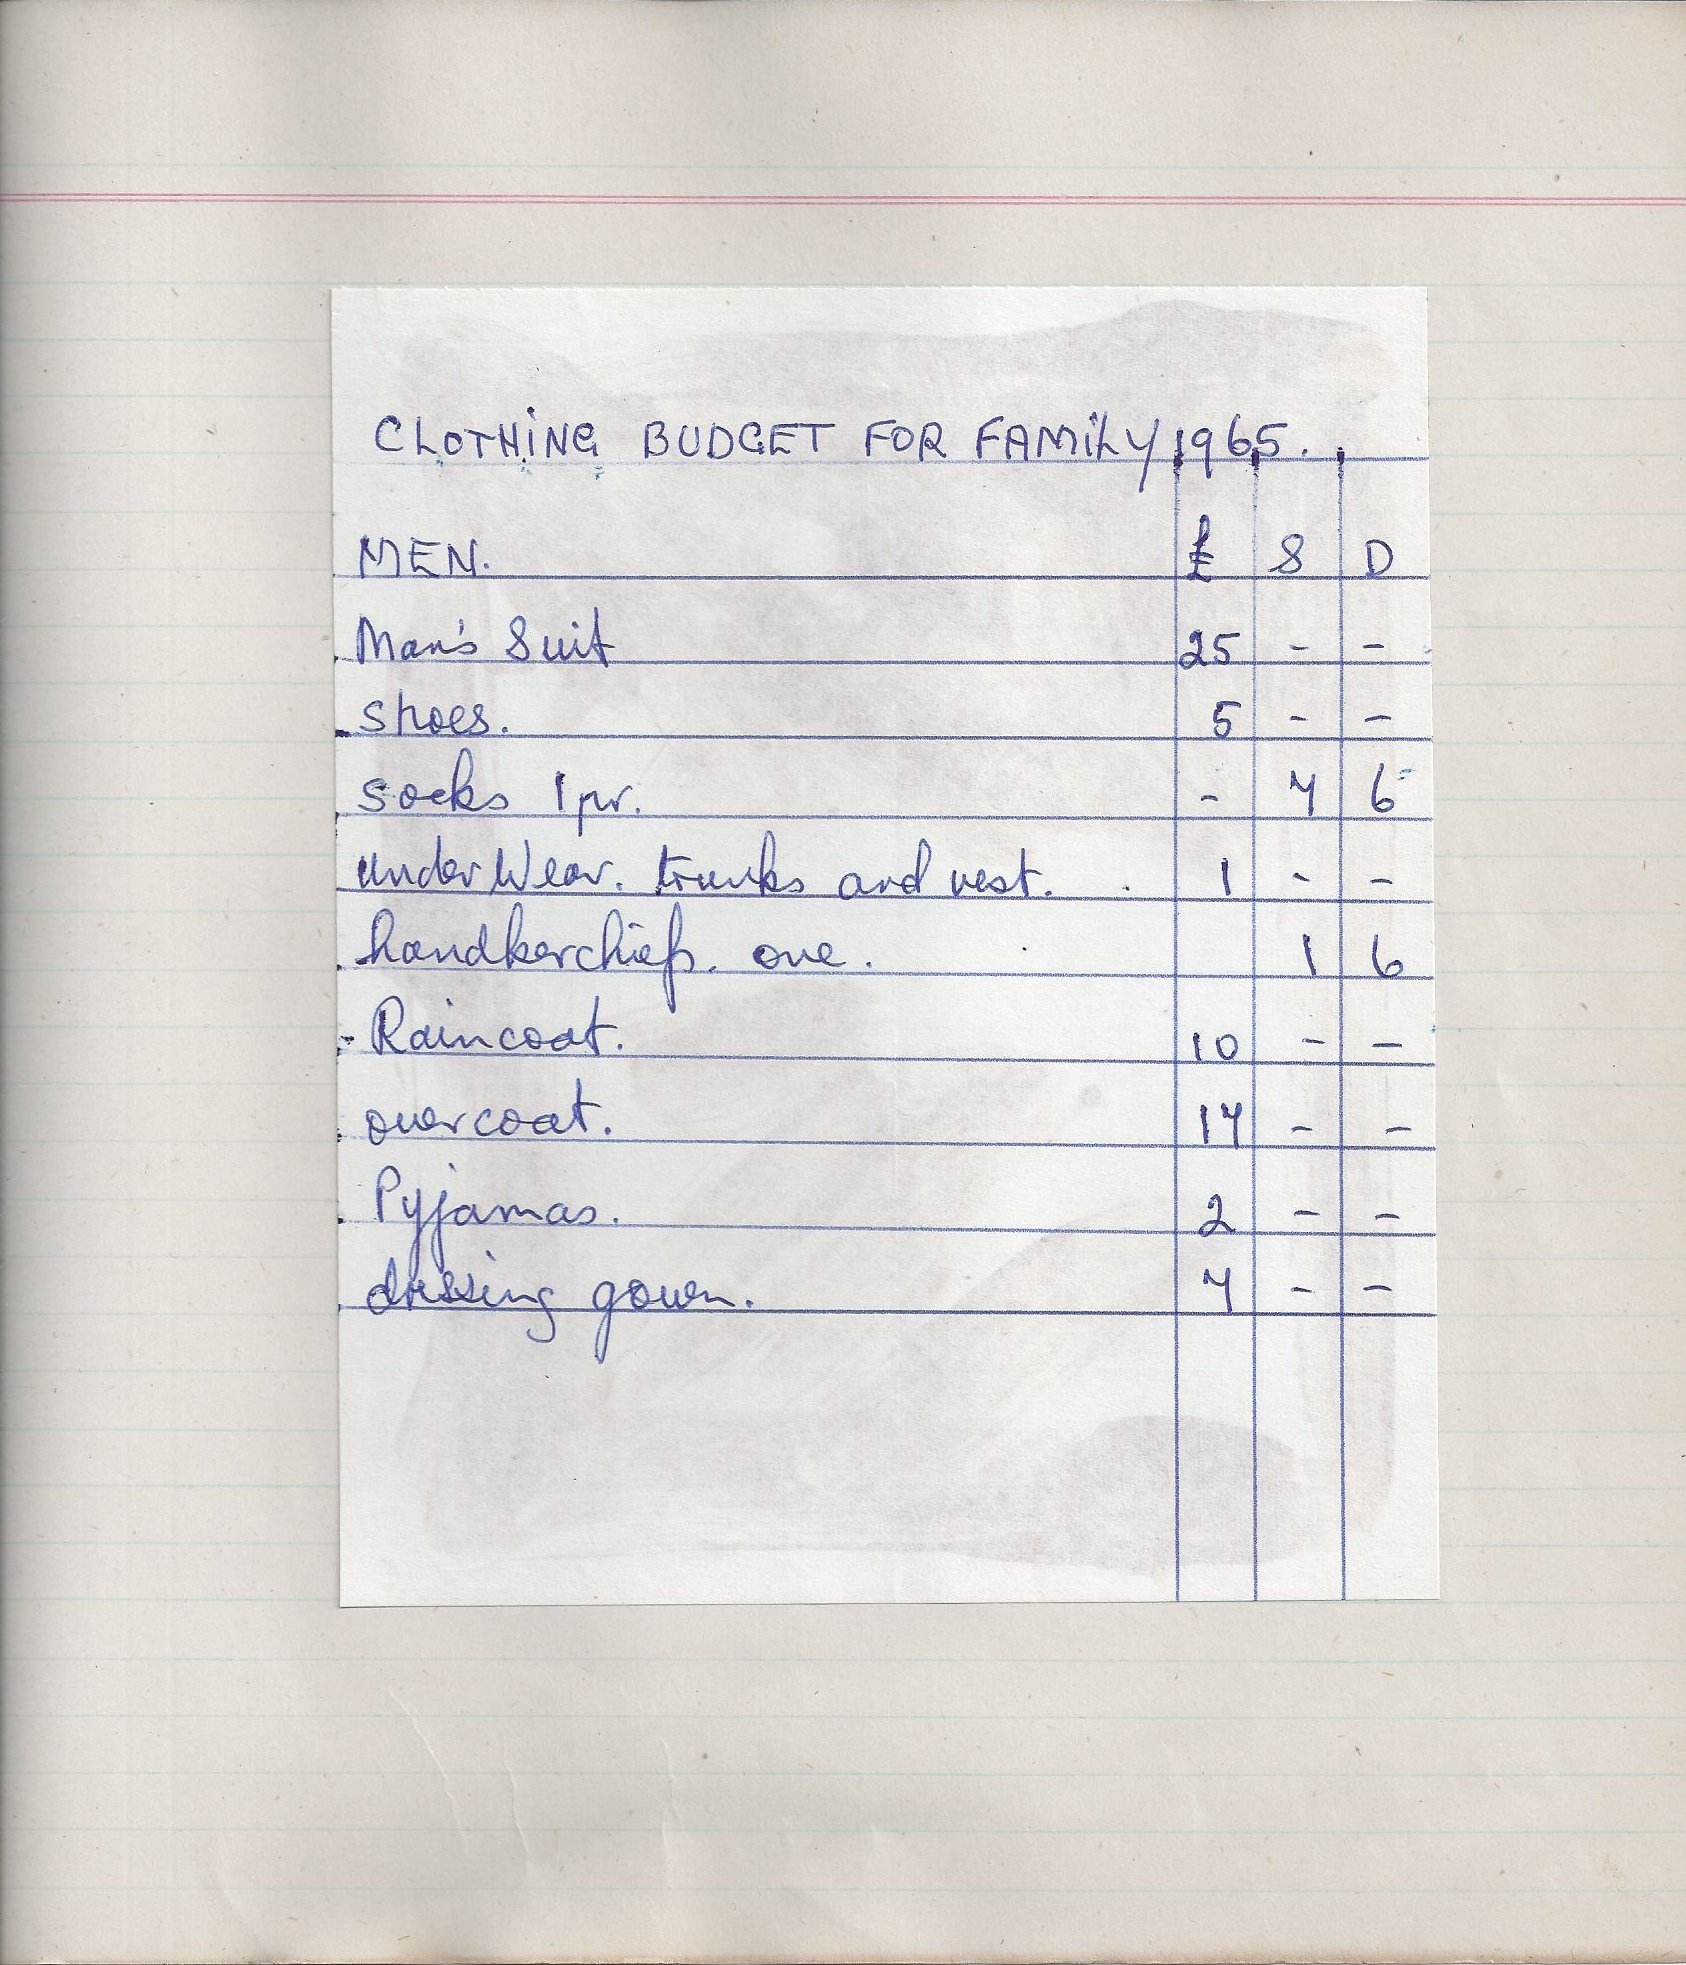 CLOTHING BUDGET FOR FAMILY 1965.
MEN. £ S D
Man's Suit 25 - -
shoes. 5 - -
socks 1 pr. - 4 6
underWear. trunks and vest. 1 - -
handkerchiefs. one. 1 6
Raincoat. 10 - -
overcoat. 14 - -
Pyjamas. 2 - -
dressing gown. 4 - -